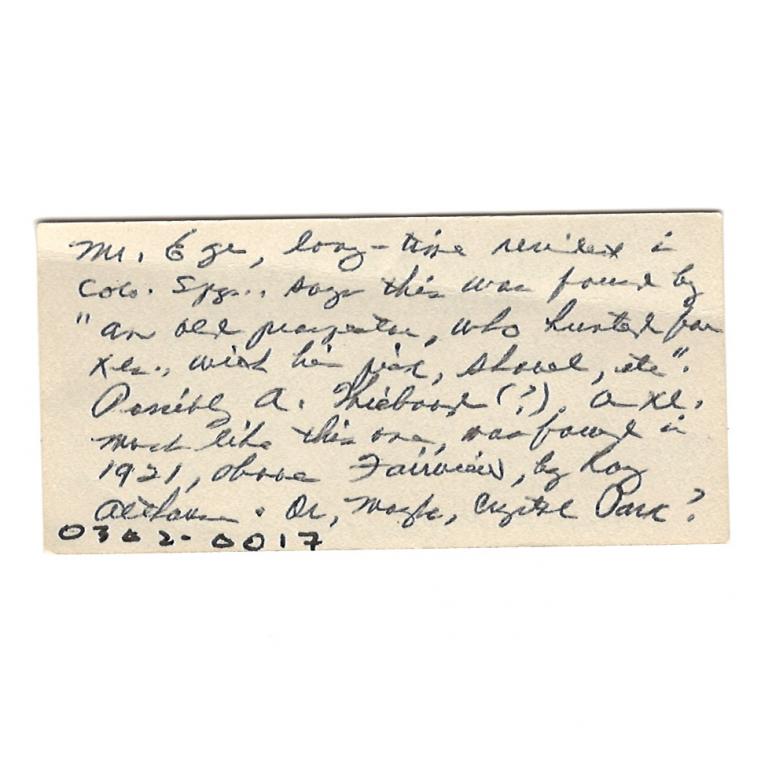 Mr. Ege, long-time resident in
Colo. Spgs., says this was found by
"an old prospector, who hunted for
xls., with his pick, shovel, etc".
Possibly A. Thiebaud (?). A xl.
much like this one, was found in
1921, above Fairview, by Roy
Or, maybe, Crystal Park?
0302-0017